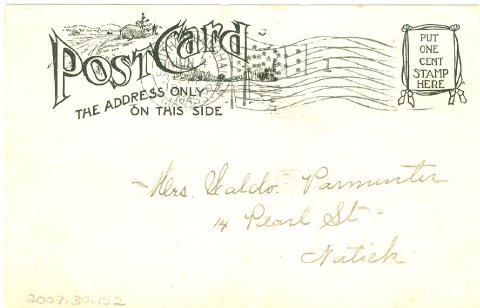 POST CARD
THE ADDRESS ONLY
ON THIS SIDE
PUT
ONE
CENT
STAMP
HERE
1
MASS
Mrs. Waldo Parmenter
14 Pearl St.
Natick
2007.30.152